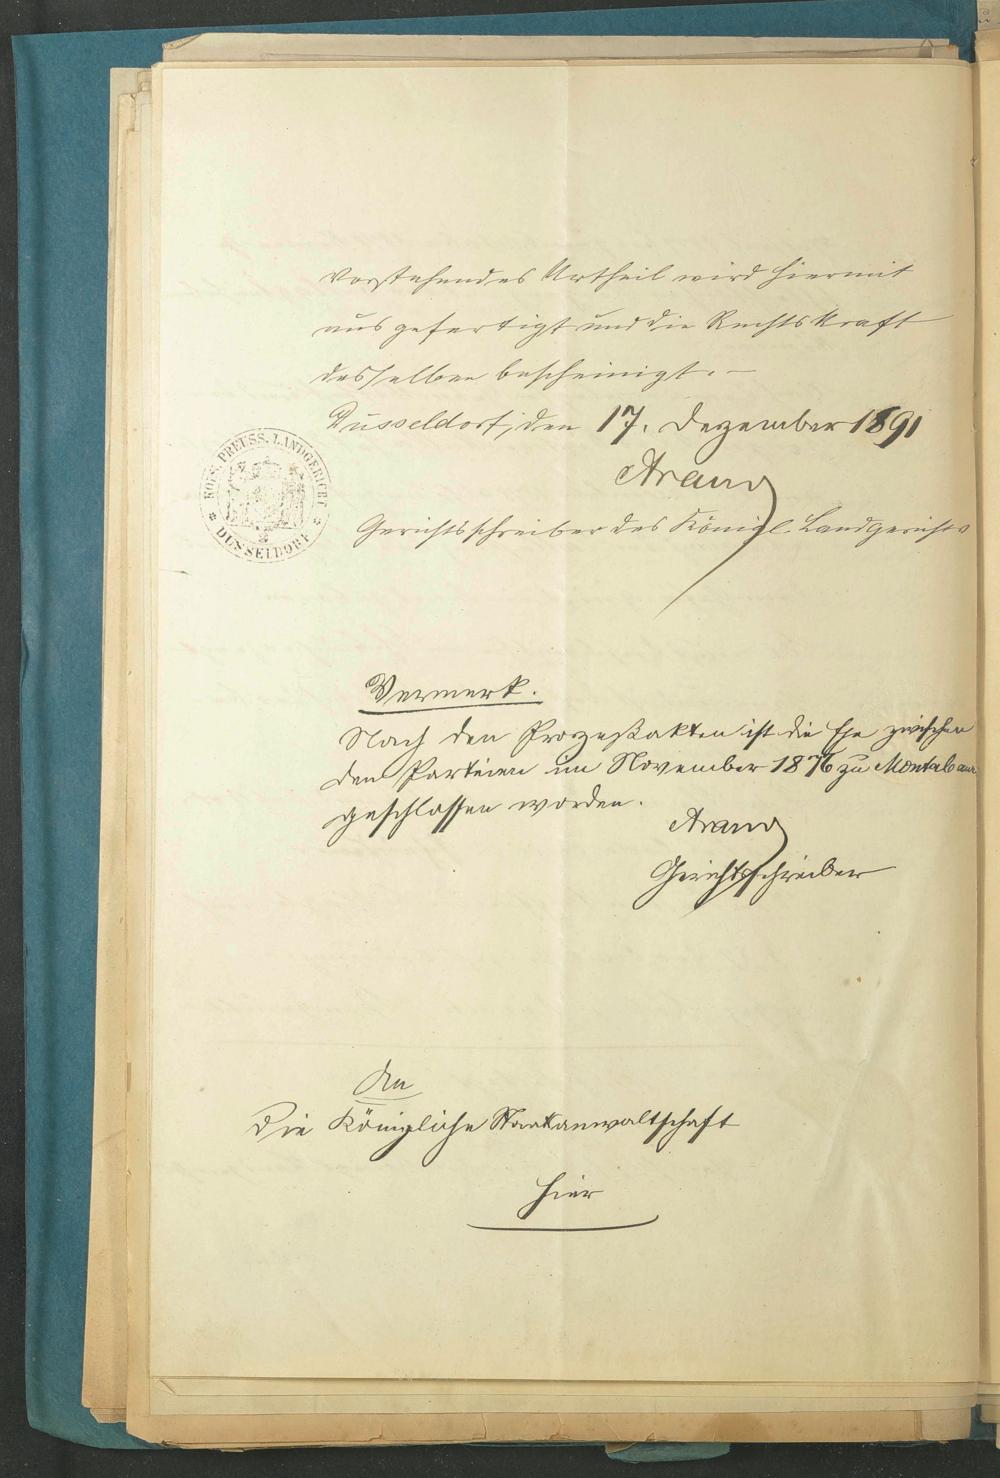 Vorstehendes Urtheil wird hiermit
ausgefertigt und die Rechtskraft
desselben bescheinigt. –
Düsseldorf, den 17. Dezember 1891
Arand
Gerichtsschreiber des Königl. Landgerichts
KOEN. PREUSS. LANDGERICHT
* DÜSSELDORF *
Vermerk.
Nach den Prozeßakten ist die Ehe zwischen
den Parteien im November 1876 zu Montabaur
geschlossen worden.
Arand
Gerichtsschreiber
An
die Königliche Staatsanwaltschaft
hier